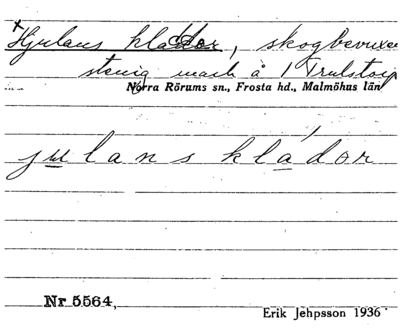 Hjulans kladdor, skogbevuxen
stenig mark å 1 Trulstorp
Norra Rörums sn., Frosta hd., Malmöhus län
julans kládor
Nr 5564,
Erik Jehpsson 1936